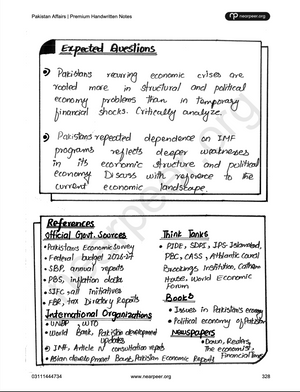 Pakistan Affairs | Premium Handwritten Notes
nearpeer.org
Expected Questions
Pakistan's recurring economic crises are
rooted more in structural and political
economy problems than in temporary
financial shocks. Critically analyze.
Pakistan's repeated dependence on IMF
programs reflects deeper weaknesses
in its economic structure and political
economy. Discuss with reference to the
current economic landscape.
References
Official Govt. Sources
• Pakistan Economic Survey
• Federal budget 2026-27
• SBP, annual reports
• PBS, inflation data
• SIFC, all initiatives
• FBR, tax Directory Reports
International Organizations
• UNDP, WTO
• World Bank, Pakistan development
updates
• IMF, Article IV consultation reports
• Asian development Bank, Pakistan Economic Reports
Think Tanks
• PIDE, SDPI, IPS-Islamabad,
PBC, CASS, Athlantic Council
Brookings Institution, Catham
House, World Economic
Forum
Books
• Issues in Pakistan's economy
• Political economy of Pakistan
Newspapers
• Dawn, Reuters,
The economist,
Financial Times
03111444734
www.nearpeer.org
328
nearpeer.org